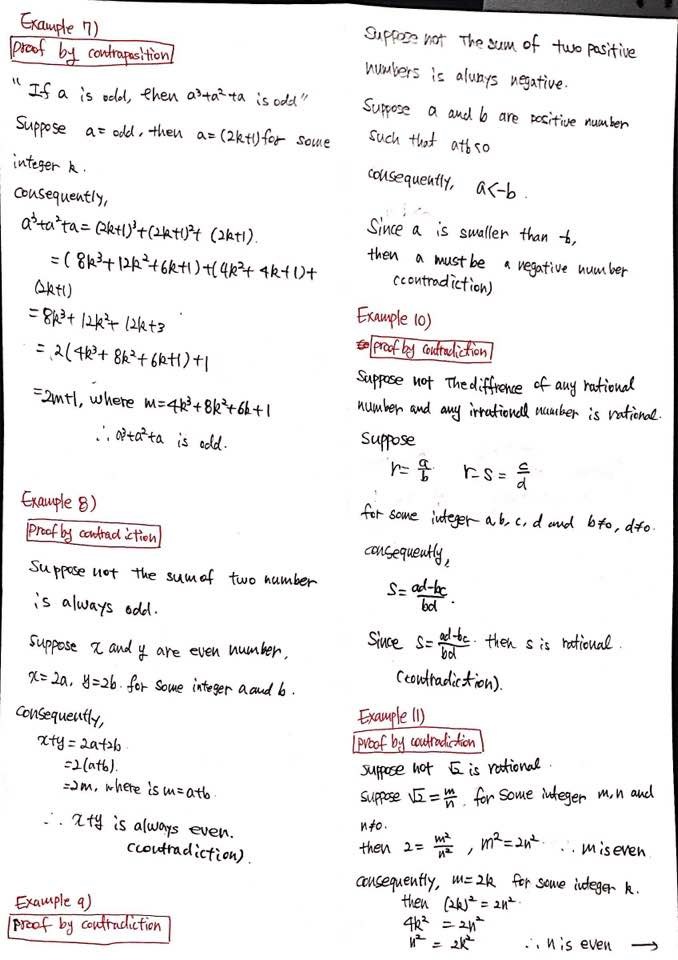 Example 7)
Proof by contraposition
"If a is odd, then a³+a²+a is odd"
Suppose a = odd, then a=(2k+1) for some
integer k.
consequently,
a³+a²+a = (2k+1)³+(2k+1)²+ (2k+1).
=(8k³+12k²+6k+1)+(4k²+4k+1)+
(2k+1)
=8k³+12k²+12k+3
=2(4k³+8k²+6k+1)+1
=2m+1, where m=4k³+8k²+6k+1
∴ a³+a²+a is odd.
Example 8)
Proof by contradiction
Suppose not the sum of two number
is always odd.
Suppose x and y are even number,
x=2a, y=2b. for some integer a and b.
consequently,
x+y = 2a+2b
=2(a+b).
=2m, where is m=a+b.
∴ x+y is always even.
(contradiction).
Example 9)
Proof by contradiction
Suppose not The sum of two positive
numbers is always negative.
Suppose a and b are positive number
such that a+b<0
consequently, a<-b.
Since a is smaller than -b,
then a must be a negative number
(contradiction)
Example 10)
Proof by contradiction
Suppose not The diffrence of any rational
number and any irrational number is rational.
Suppose
r=a/b r-s=c/d
for some integer a,b,c,d and b≠0, d≠0.
consequently,
s=ad-bc/bd.
Since s=ad-bc/bd. then s is rational.
(contradiction).
Example 11)
Proof by contradiction
Suppose not √2 is rational.
Suppose √2=m/n, for some integer m,n and
n≠0.
then 2=m²/n², m²=2n². ∴ m is even.
consequently, m=2k for some integer k.
then (2k)²=2n²
4k²=2n²
n²=2k² ∴ n is even →